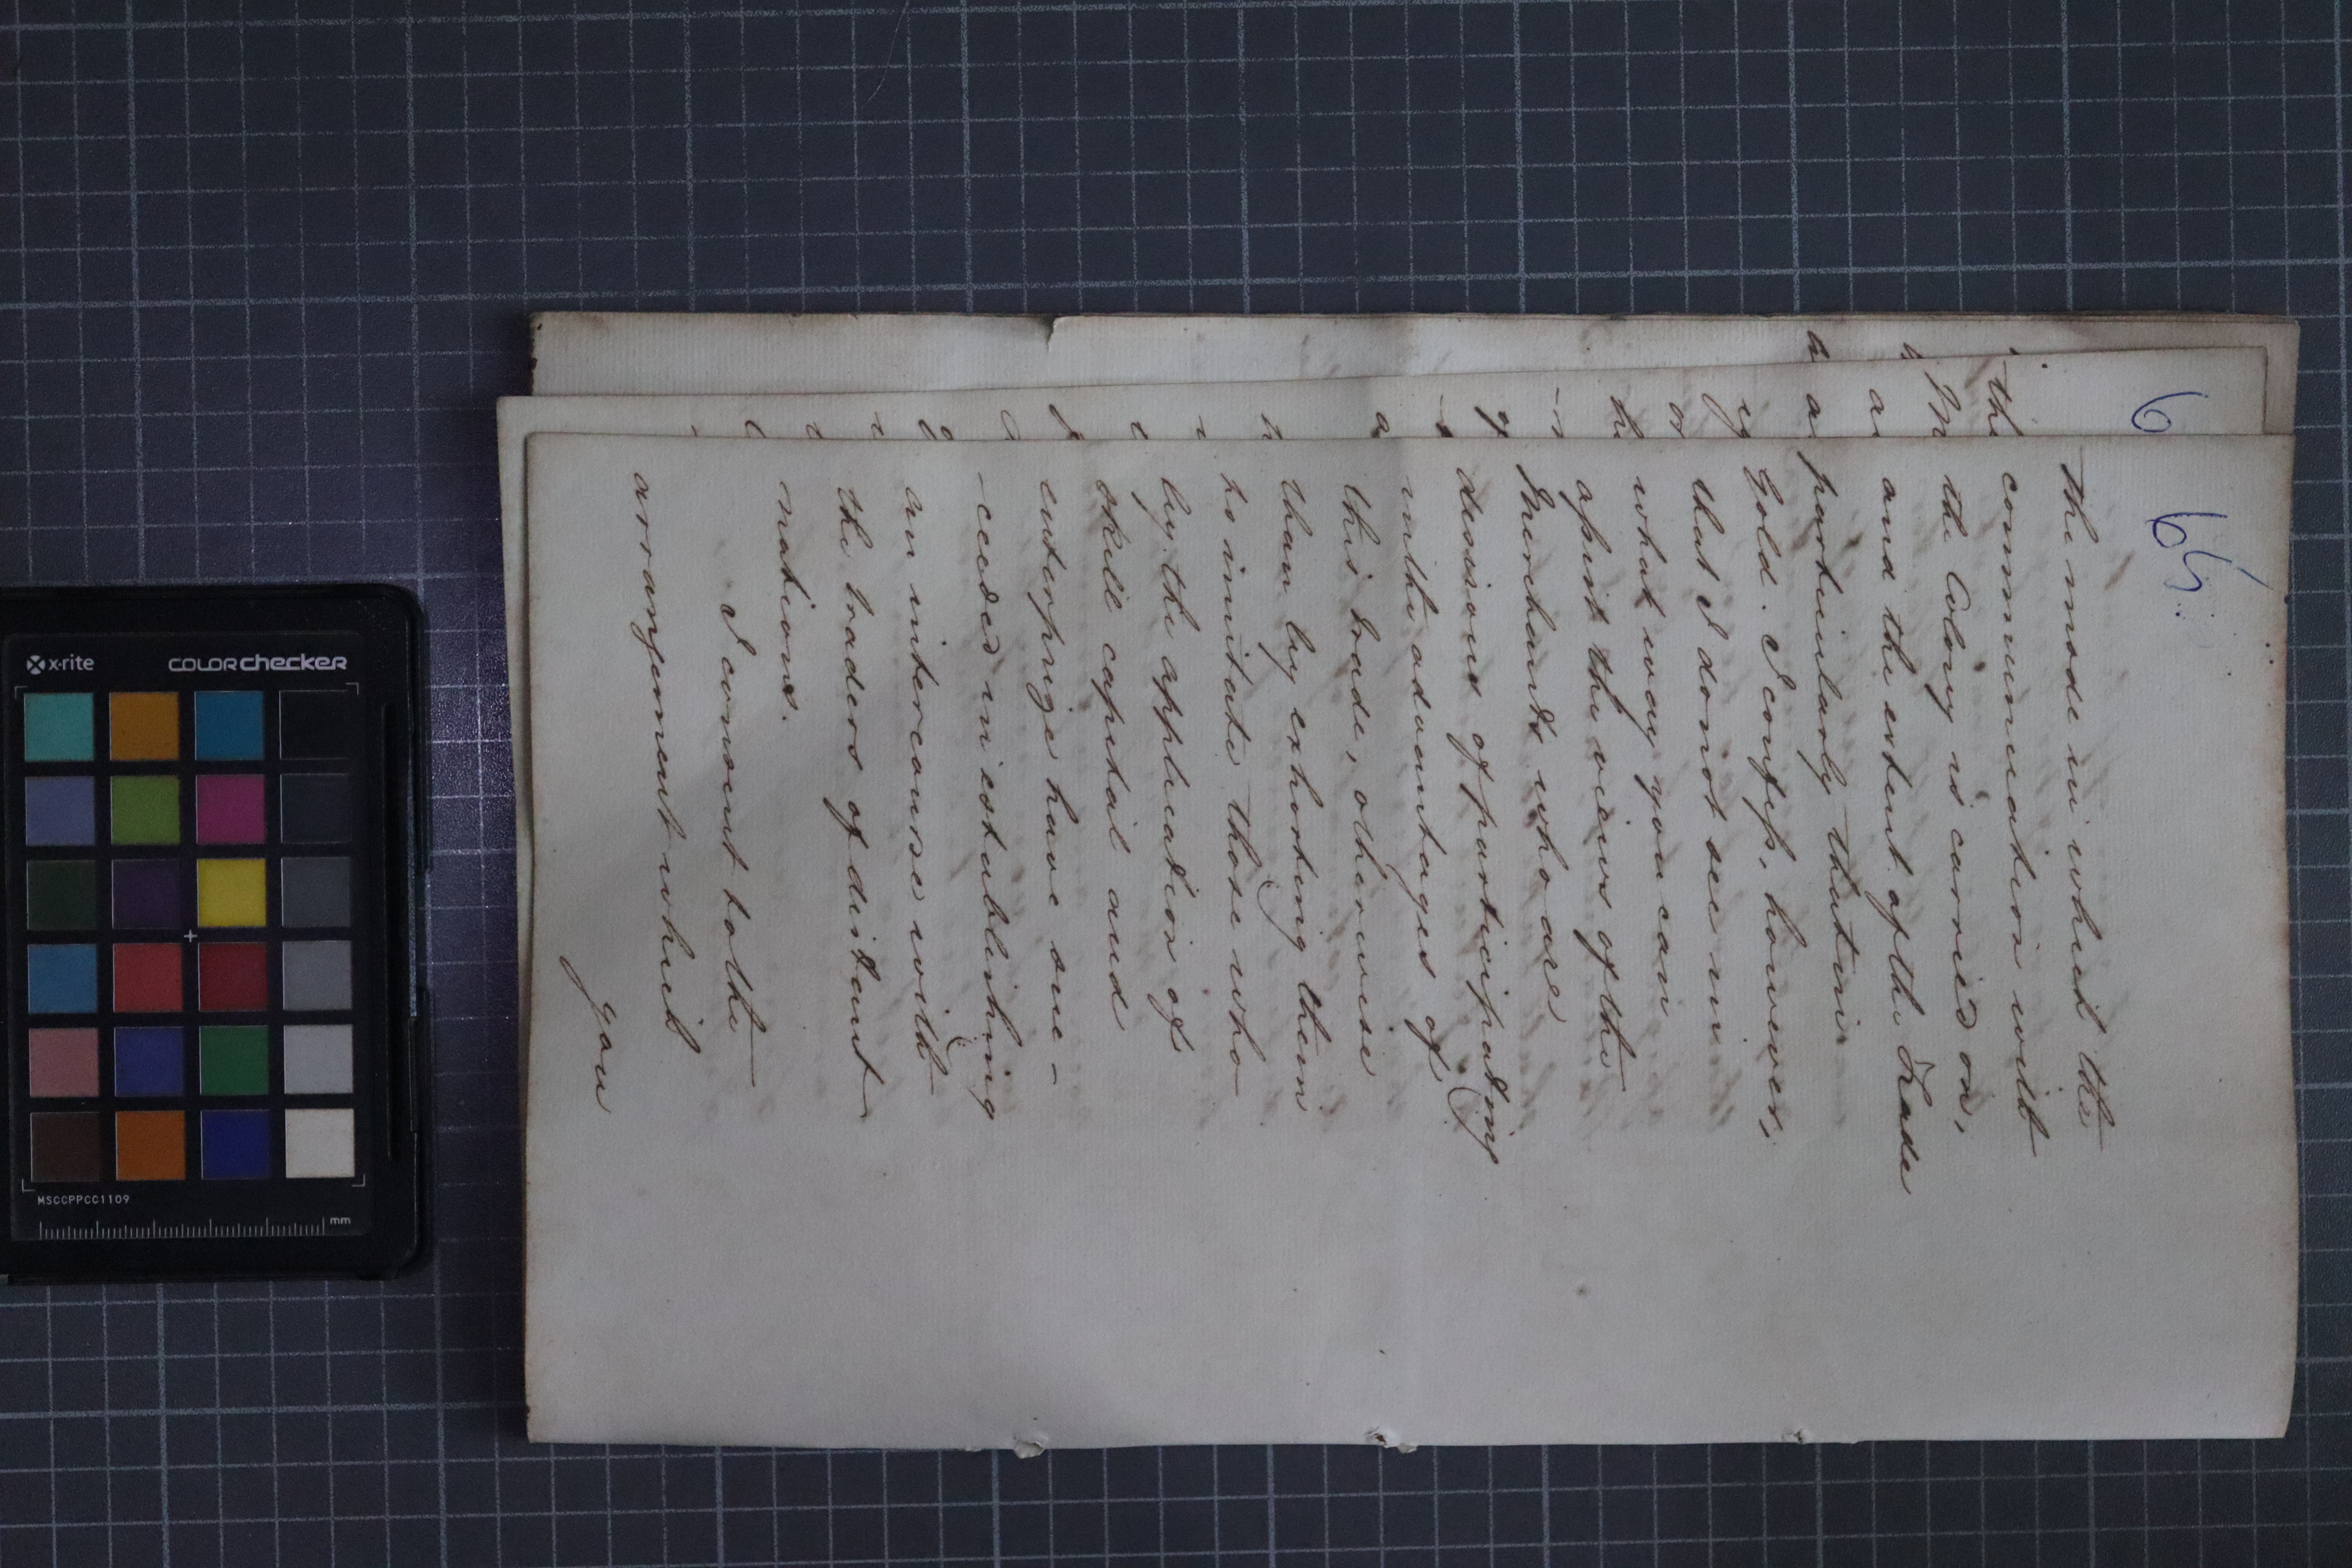 65.
the mode in which the
communication with
the Colony is carried on,
and the extent of the Trade
particularly that in
Gold. I confess, however,
that I do not see in
what way you can
assist the views of the
Merchants who are
desirous of participating
in the advantages of
this trade, otherwise
than by exhorting them
to imitate those who
by the application of
skill capital and
enterprize have suc-
-ceeded in establishing
an intercourse with
the traders of distant
nations.
I consent to the
arrangement which
you
6
x-rite
COLORchecker
MSCCPPCC1109
mm